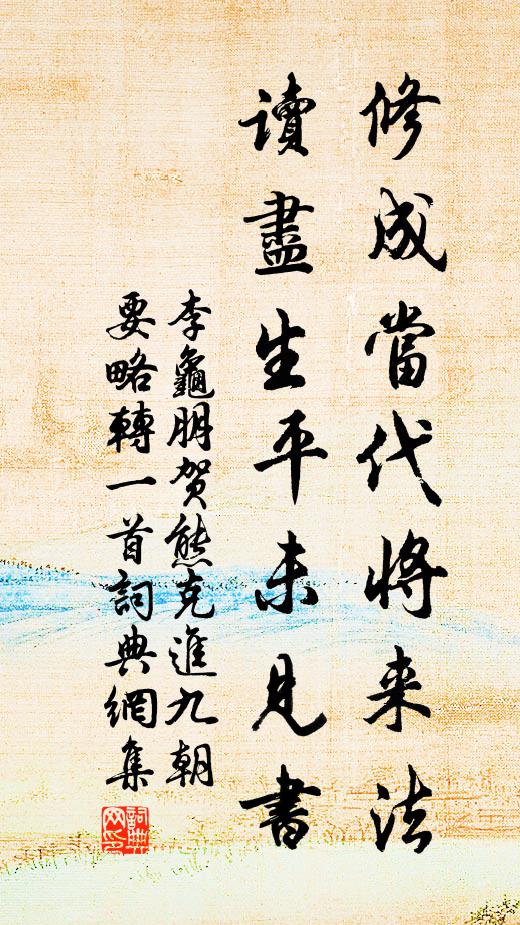 修成當代將来法
讀盡生平未見書
李龜朋贺熊克進九朝
要略轉一首詞典網集
詞典网印